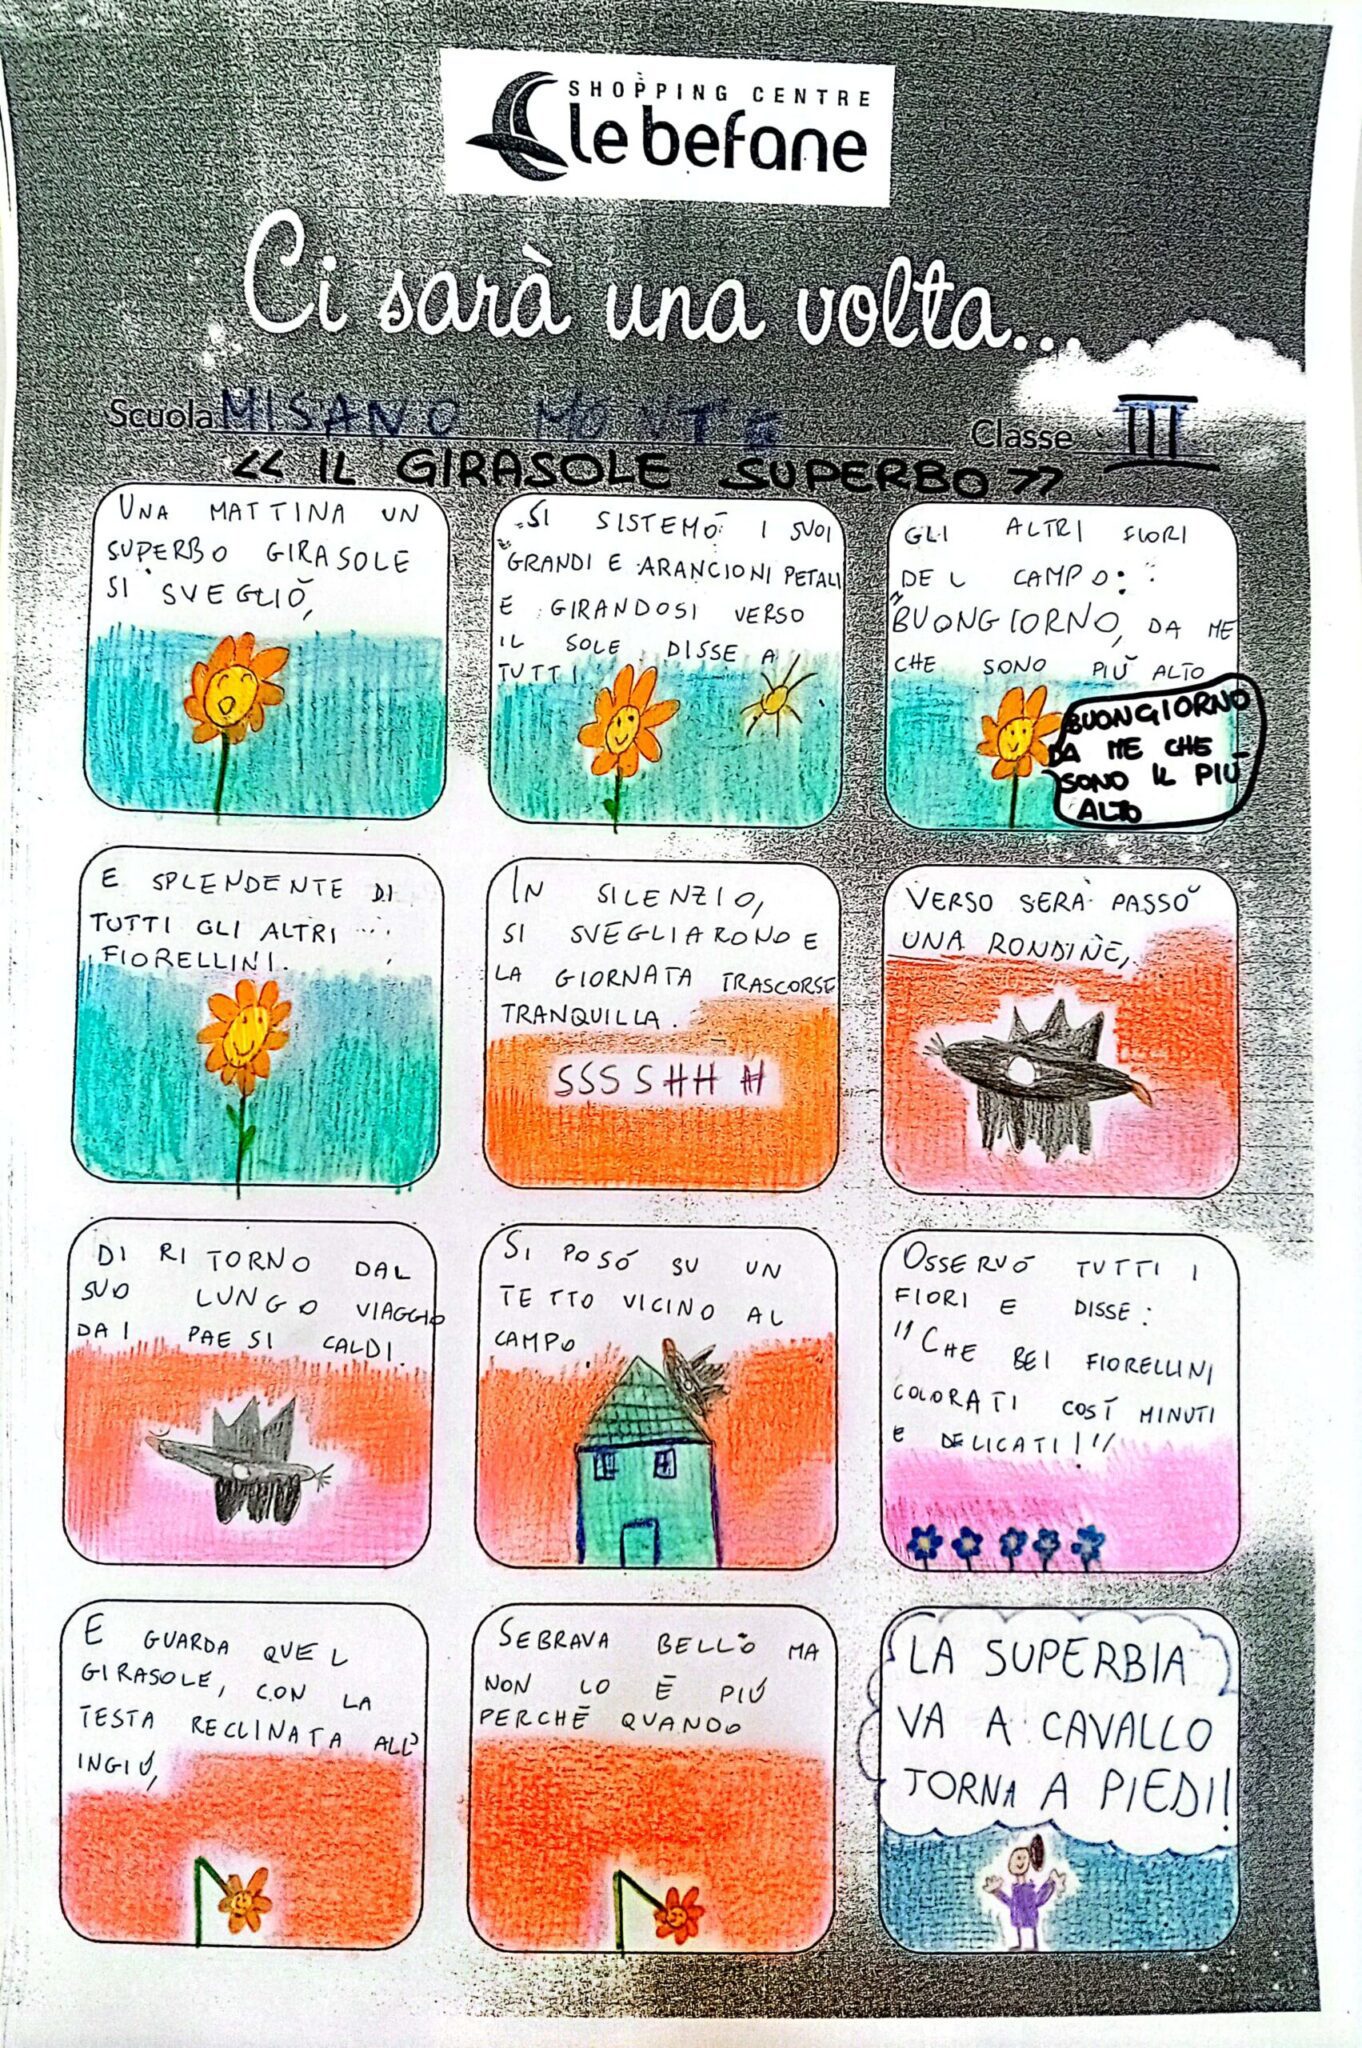 SHOPPING CENTRE
le befane
Ci sarà una volta...
Scuola MISANO MONTE Classe III
<< IL GIRASOLE SUPERBO >>
UNA MATTINA UN
SUPERBO GIRASOLE
SI SVEGLIÒ,
SI SISTEMÒ I SUOI
GRANDI E ARANCIONI PETALI
E GIRANDOSI VERSO
IL SOLE DISSE A
TUTTI
GLI ALTRI FIORI
DEL CAMPO:
"BUONGIORNO, DA ME
CHE SONO PIÙ ALTO
BUONGIORNO
DA ME CHE
SONO IL PIÙ
ALTO
E SPLENDENTE DI
TUTTI GLI ALTRI
FIORELLINI.
IN SILENZIO,
SI SVEGLIARONO E
LA GIORNATA TRASCORSE
TRANQUILLA.
SSSSHHH
VERSO SERA PASSÒ
UNA RONDINE,
DI RITORNO DAL
SUO LUNGO VIAGGIO
DAI PAESI CALDI.
SI POSÓ SU UN
TETTO VICINO AL
CAMPO.
OSSERVÓ TUTTI I
FIORI E DISSE:
"CHE BEI FIORELLINI
COLORATI COSÍ MINUTI
E DELICATI!"
E GUARDA QUEL
GIRASOLE, CON LA
TESTA RECLINATA ALL'
INGIÚ,
SEBRAVA BELLO MA
NON LO È PIÚ
PERCHÈ QUANDO
LA SUPERBIA
VA A CAVALLO
TORNA A PIEDI!